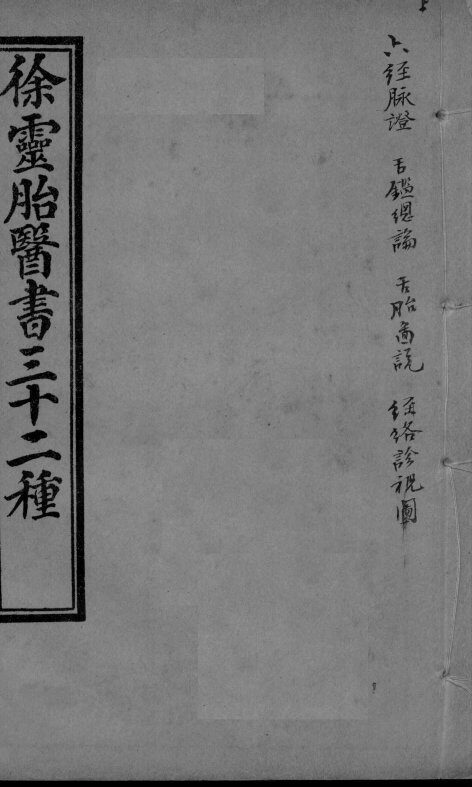 六經脉證 舌鑑總論 舌胎圖說 經絡診視圖
徐靈胎醫書三十二種